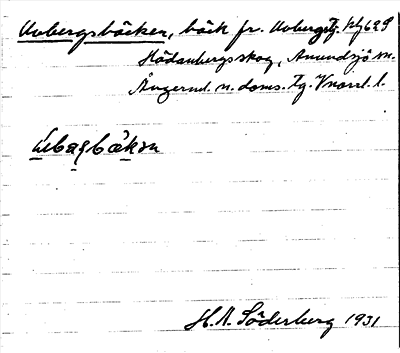 Uvbergsbäcken, bäck fr. Uvbergstj. kbl 629
Hädanbergsskog, Anundsjö sn.
Ångerml. n. doms. tg. Vnorrl. l.
ɯ̀baʂbɛ̀kən
H. N. Söderberg 1931